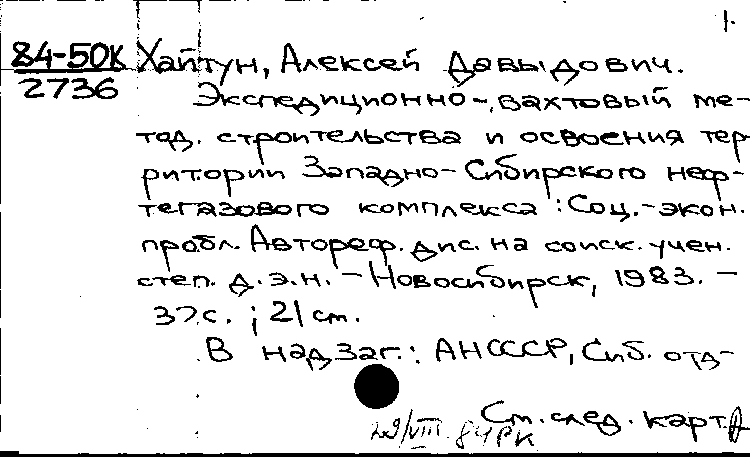 1.
84-50К Хайтун, Алексей Давыдович.
2736
Экспедиционно-вахтовый ме-
тод. строительства и освоения тер-
ритории Западно-Сибирского неф-
тегазового комплекса : Соц.-экон.
пробл. Автореф. дис. на соиск. учен.
степ. д.э.н. - Новосибирск, 1983. -
37с. ; 21 см.
В надзаг.: АНСССР, Сиб. отд-
См. след. карт.
29/VIII 84